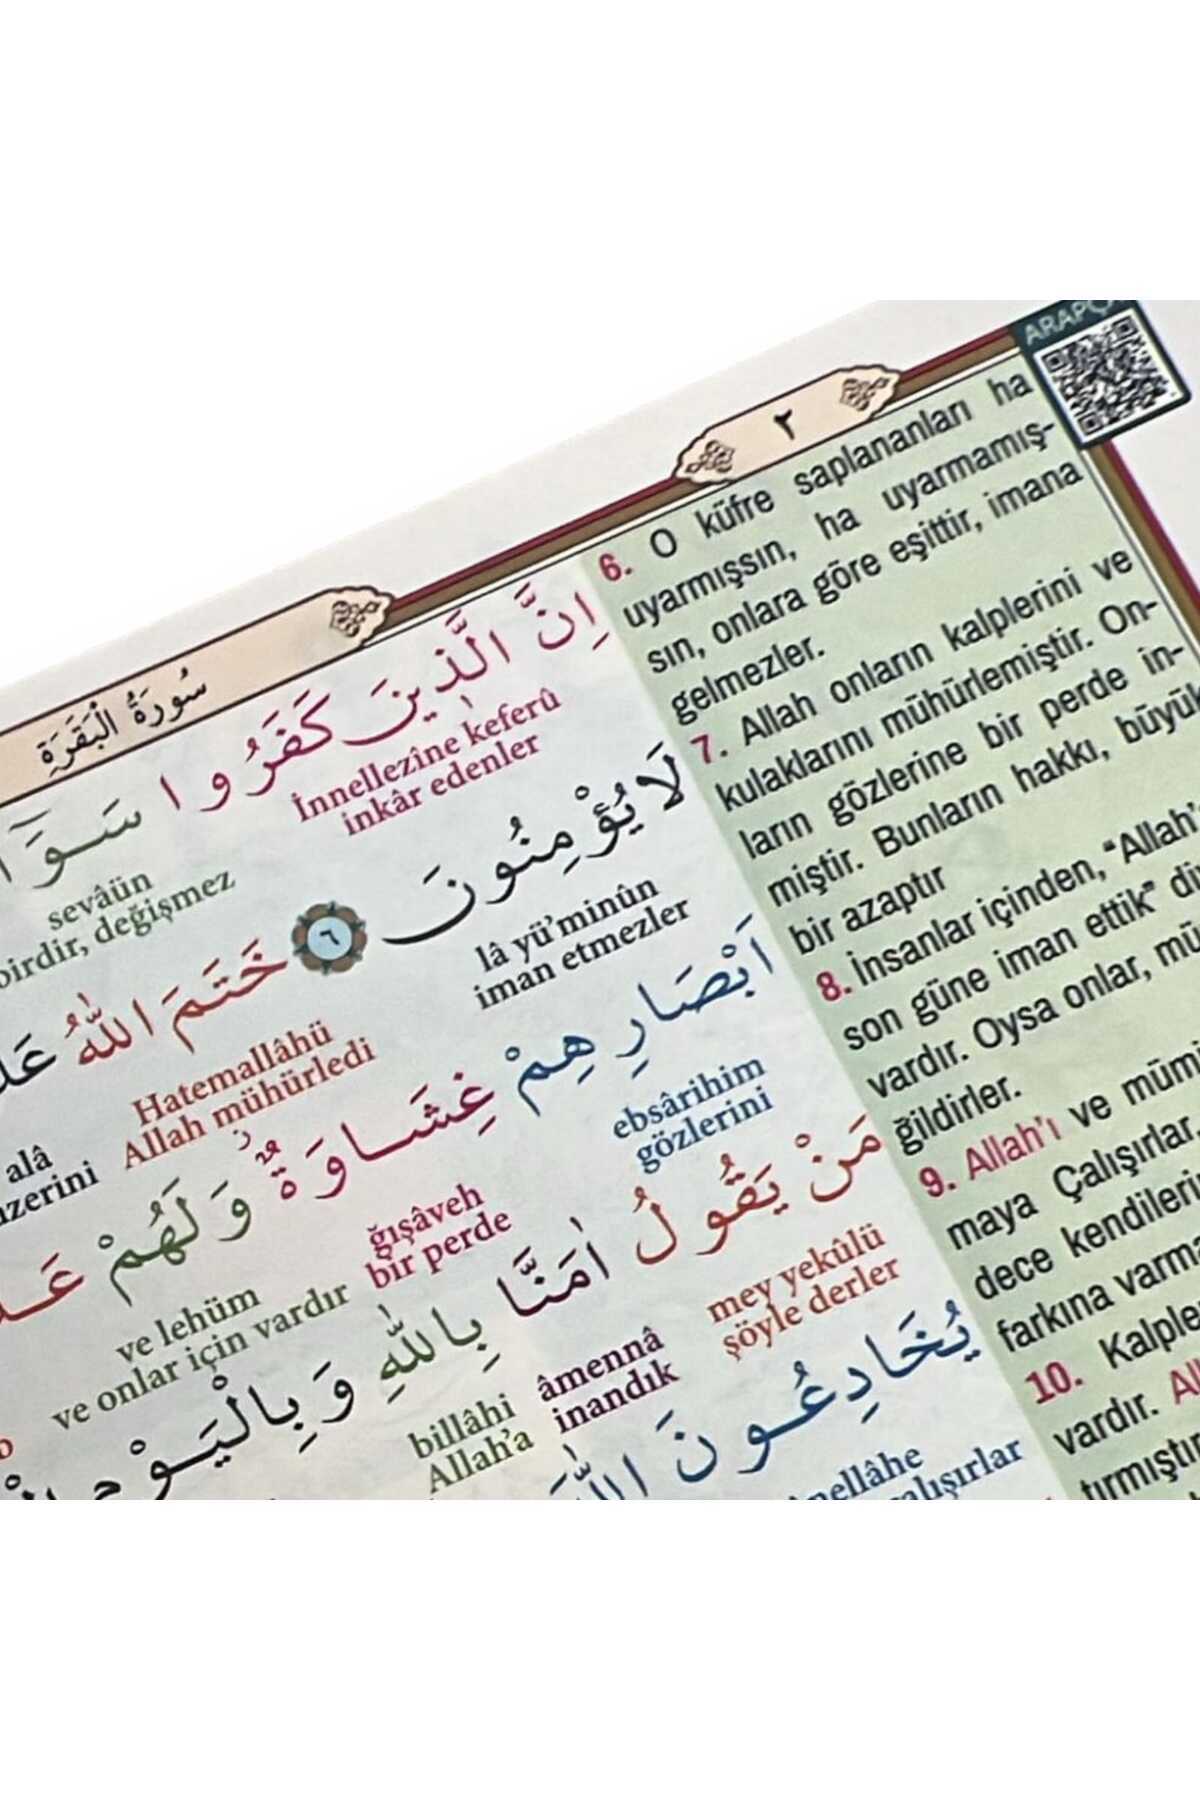 ARAPÇA
٢
سُورَةُ الْبَقَرَةِ
اِنَّ الَّذ۪ينَ كَفَرُوا
İnnellezîne keferû
inkâr edenler
sevâün
birdir, değişmez
لَا يُؤْمِنُونَ ﴿٦﴾ خَتَمَ اللّٰهُ
lâ yü'minûn
iman etmezler
Hatemallâhü
Allah mühürledi
alâ
üzerini
اَبْصَارِهِمْ غِشَاوَةٌ وَلَهُمْ
ebsârihim
gözlerini
ğışâveh
bir perde
ve lehüm
ve onlar için vardır
مَنْ يَقُولُ اٰمَنَّا بِاللّٰهِ وَبِالْيَوْمِ
mey yekûlü
şöyle derler
âmennâ
inandık
billâhi
Allah'a
يُخَادِعُونَ اللّٰهَ
6. O küfre saplananları ha
uyarmışsın, ha uyarmamış-
sın, onlara göre eşittir, imana
gelmezler.
7. Allah onların kalplerini ve
kulaklarını mühürlemiştir. On-
ların gözlerine bir perde in-
miştir. Bunların hakkı, büyük
bir azaptır
8. İnsanlar içinden, "Allah'
son güne iman ettik"
vardır. Oysa onlar,
ğildirler.
9. Allah'ı ve
maya Çalışırlar,
dece
farkına
10.
vardır.